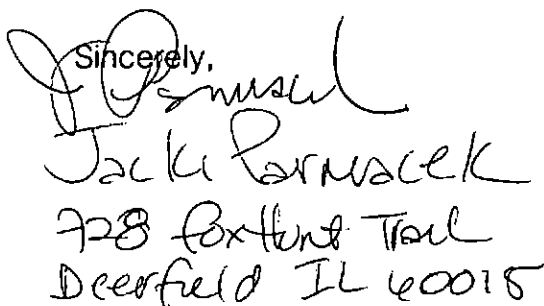 Sincerely,
J Parmacek
Jacki Parmacek
728 Fox Hunt Trail
Deerfield IL 60015